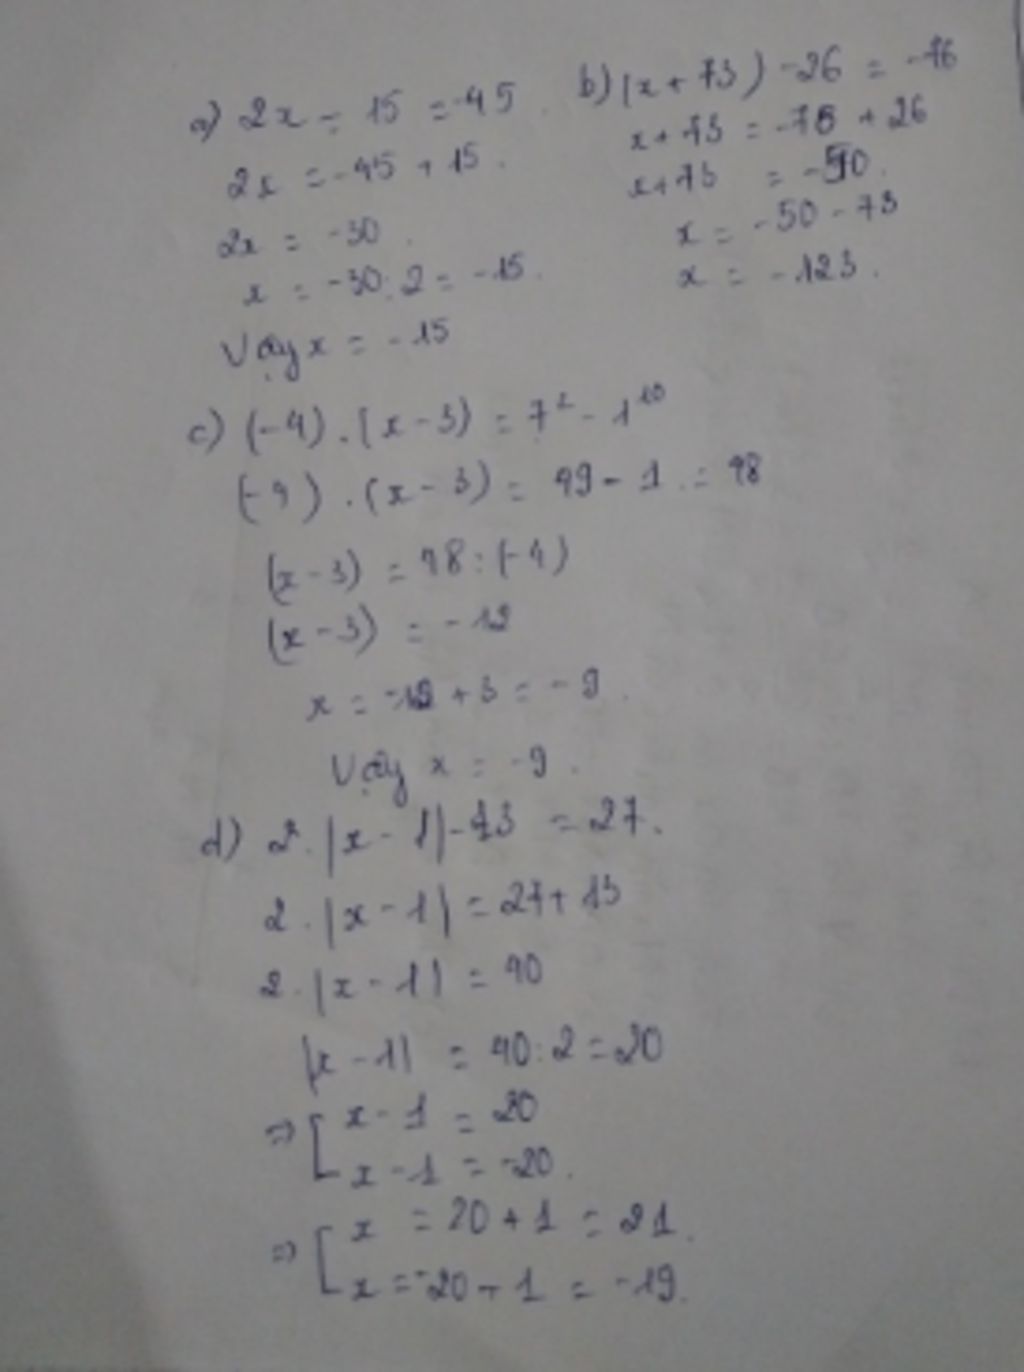 a) 2x - 15 = -45
2x = -45 + 15.
2x = -30.
x = -30:2 = -15.
Vậy x = -15
b) (x + 73) - 26 = -76
x + 73 = -76 + 26
x + 73 = -50.
x = -50 - 73
x = -123.
c) (-4) . (x - 3) = 7² - 1¹⁰
(-4) . (x - 3) = 49 - 1 = 48
(x - 3) = 48 : (-4)
(x - 3) = -12
x = -12 + 3 = -9.
Vậy x = -9.
d) 2. |x - 1| - 13 = 27.
2. |x - 1| = 27 + 13
2. |x - 1| = 40
|x - 1| = 40:2 = 20
=> [ x - 1 = 20
x - 1 = -20.
=> [ x = 20 + 1 = 21.
x = -20 + 1 = -19.